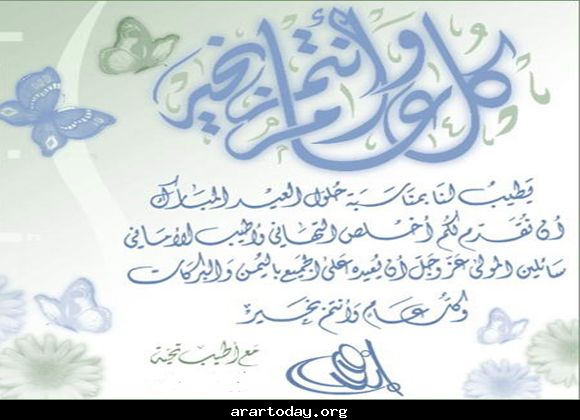 كل عام وأنتم بخير
يطيب لنا بمناسبة حلول العيد المبارك
أن نقدم لكم أخلص التهاني وأطيب الأماني
سائلين المولى عز وجل أن يعيده على الجميع باليمن والبركات
وكل عام وأنتم بخير
مع أطيب تحية
arartoday.org